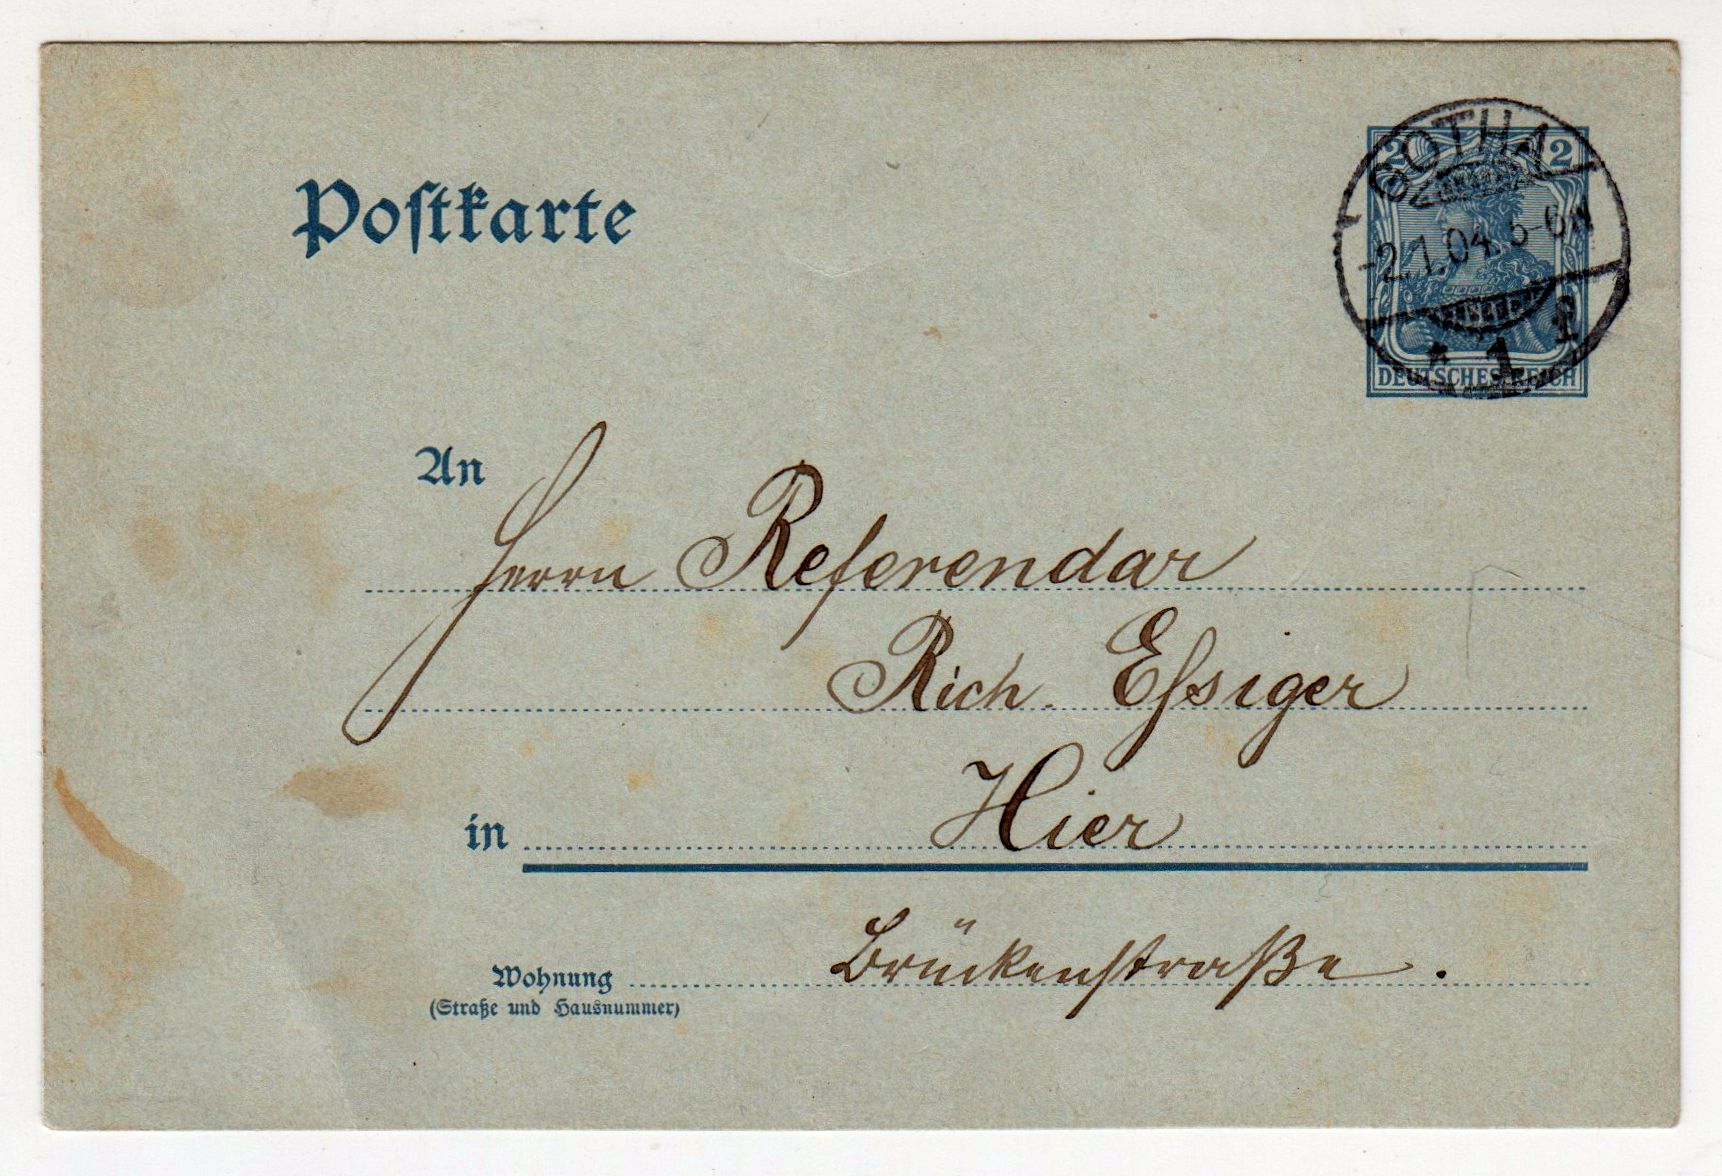 Postkarte
2 2
GOTHA
-2.1.04. 5-6N
* 1 f
DEUTSCHES REICH
An
Herrn Referendar
Rich. Eſsiger
in Hier
Wohnung Brückenstraße.
(Straße und Hausnummer)